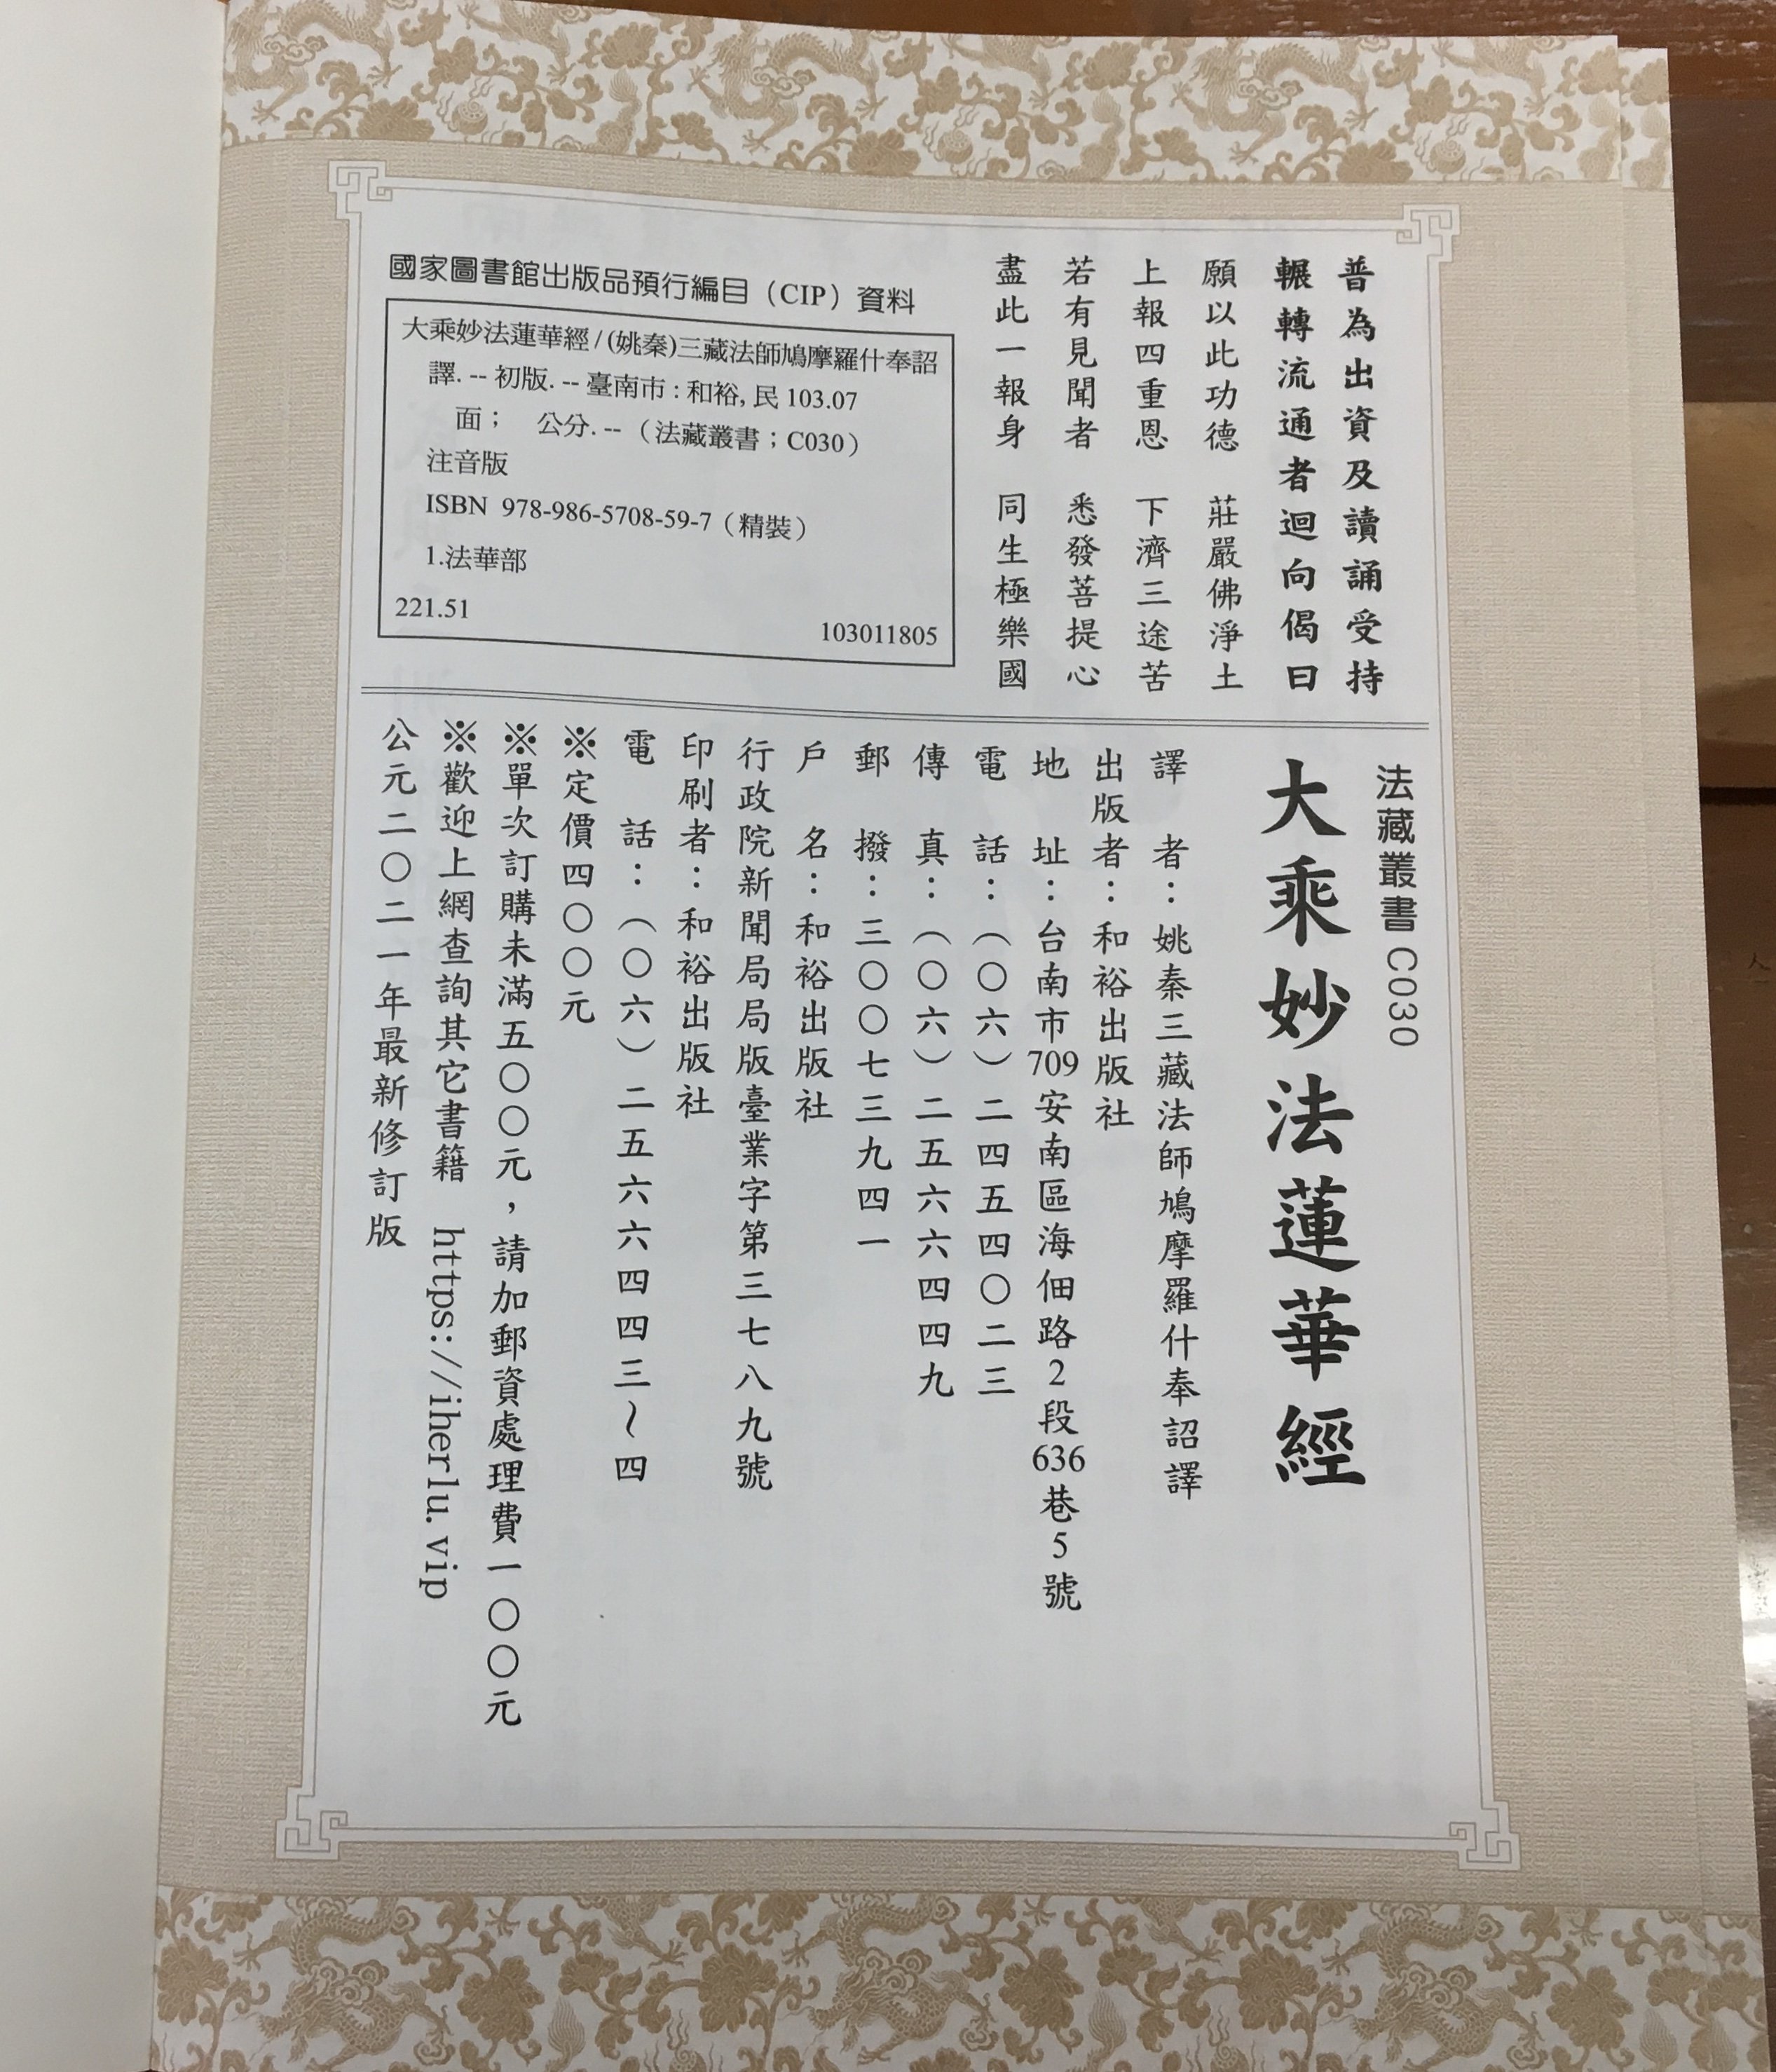 普為出資及讀誦受持
輾轉流通者迴向偈曰
願以此功德　莊嚴佛淨土
上報四重恩　下濟三途苦
若有見聞者　悉發菩提心
盡此一報身　同生極樂國
國家圖書館出版品預行編目（CIP）資料
大乘妙法蓮華經 / (姚秦)三藏法師鳩摩羅什奉詔
譯. -- 初版. -- 臺南市 : 和裕, 民 103.07
面；　公分. --（法藏叢書；C030）
注音版
ISBN 978-986-5708-59-7（精裝）
1.法華部
221.51
103011805
法藏叢書 C030
大乘妙法蓮華經
譯　者：姚秦三藏法師鳩摩羅什奉詔譯
出版者：和裕出版社
地　址：台南市709安南區海佃路2段636巷5號
電　話：（〇六）二四五四〇二三
傳　真：（〇六）二五六六四四九
郵　撥：三〇〇七三九四一
戶　名：和裕出版社
行政院新聞局局版臺業字第三七八九號
印刷者：和裕出版社
電　話：（〇六）二五六六四四三～四
※定價四〇〇元
※單次訂購未滿五〇〇元，請加郵資處理費一〇〇元
※歡迎上網查詢其它書籍　https://iherlu.vip
公元二〇二一年最新修訂版